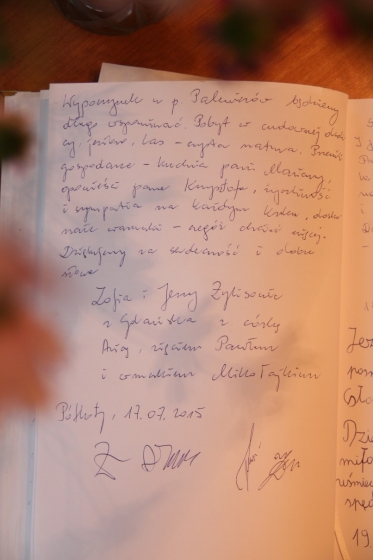 Wypoczynek w p. Palewiczów będziemy
długo wspominać. Pobyt w cudownej okoli-
cy, jezioro, las – czysta natura. Przemili
gospodarze – kuchnia pani Marianny,
opowieści pana Krzysztofa, życzliwość
i sympatia na każdym kroku, dosko-
nałe warunki – czegóż chcieć więcej.
Dziękujemy za serdeczność i dobre
słowo
Zofia i Jerzy
z Gdańska z córką
Anią, zięciem Pawłem
i wnukiem Mikołajkiem
17.07.2015
Jerz
pos
Dzię
miło
uśmiec
spęd
19